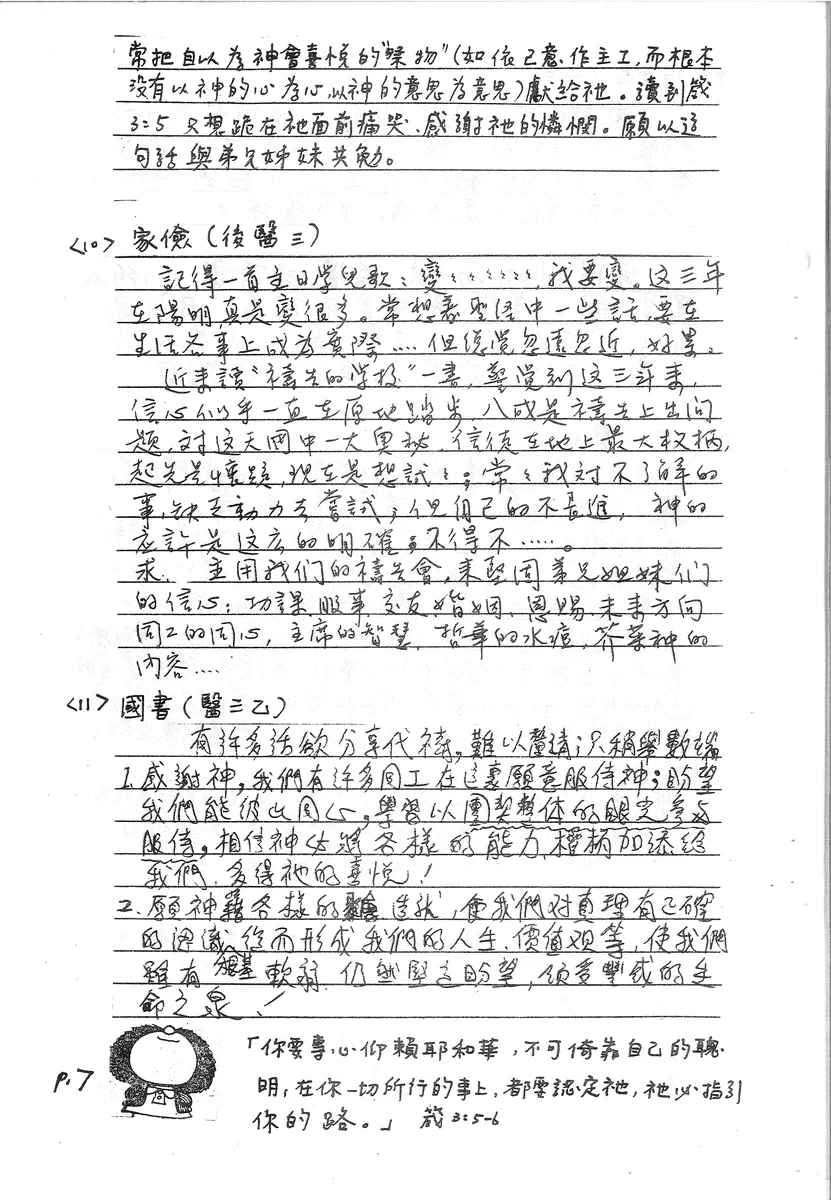 常把自以為神會喜悅的"祭物"(如依己意作主工,而根本
沒有以神的心為心,以神的意思為意思)獻給祂。讀到箴
3:5 只想跪在祂面前痛哭、感謝祂的憐憫。願以這
句話與弟兄姊妹共勉。
<10> 家儉(後醫三)
記得一首主日學兒歌:變〻〻〻〻〻〻,我要變。这三年
在陽明,真是變很多。常想著聖經中一些話,要在
生活各事上成為實際....但總覺忽遠忽近,好累。
近來讀"禱告的学校"一書,驚覺到这三年來,
信心似乎一直在原地踏步,八成是禱告上出问
題,对这天國中一大奧祕,信徒在地上最大权柄,
起先是懷疑,現在是想試〻;常〻我对不了解的
事,缺乏動力去嘗試;但自己的不長進, 神的
应許是这庅的明確,不得不.....。
求.. 主用我们的禱告會,來堅固弟兄姐妹们
的信心:功課、服事、交友、婚姻、恩賜、未來方向
同工的同心,主席的智慧,哲華的水痘,芥菜种的
內容....
<11> 國書(醫三乙)
有許多話欲分享代禱,難以釐清;只稍舉數端
1.感謝神,我們有許多同工在這裏願意服侍神;盼望
我們能彼此同心,學習以團契整体的眼光參與
服侍,相信神必將各樣的能力、權柄加添給
我們,多得祂的喜悅!
2.願神藉各樣的聚會造就,使我們对真理有正確
的認識,從而形成我們的人生、價值观等,使我們
雖有軟弱,仍然堅定盼望,領受豐盛的生
命之泉!
p.7
「你要專心仰賴耶和華,不可倚靠自己的聰
明;在你一切所行的事上,都要認定祂,祂必指引
你的路。」 箴 3:5-6